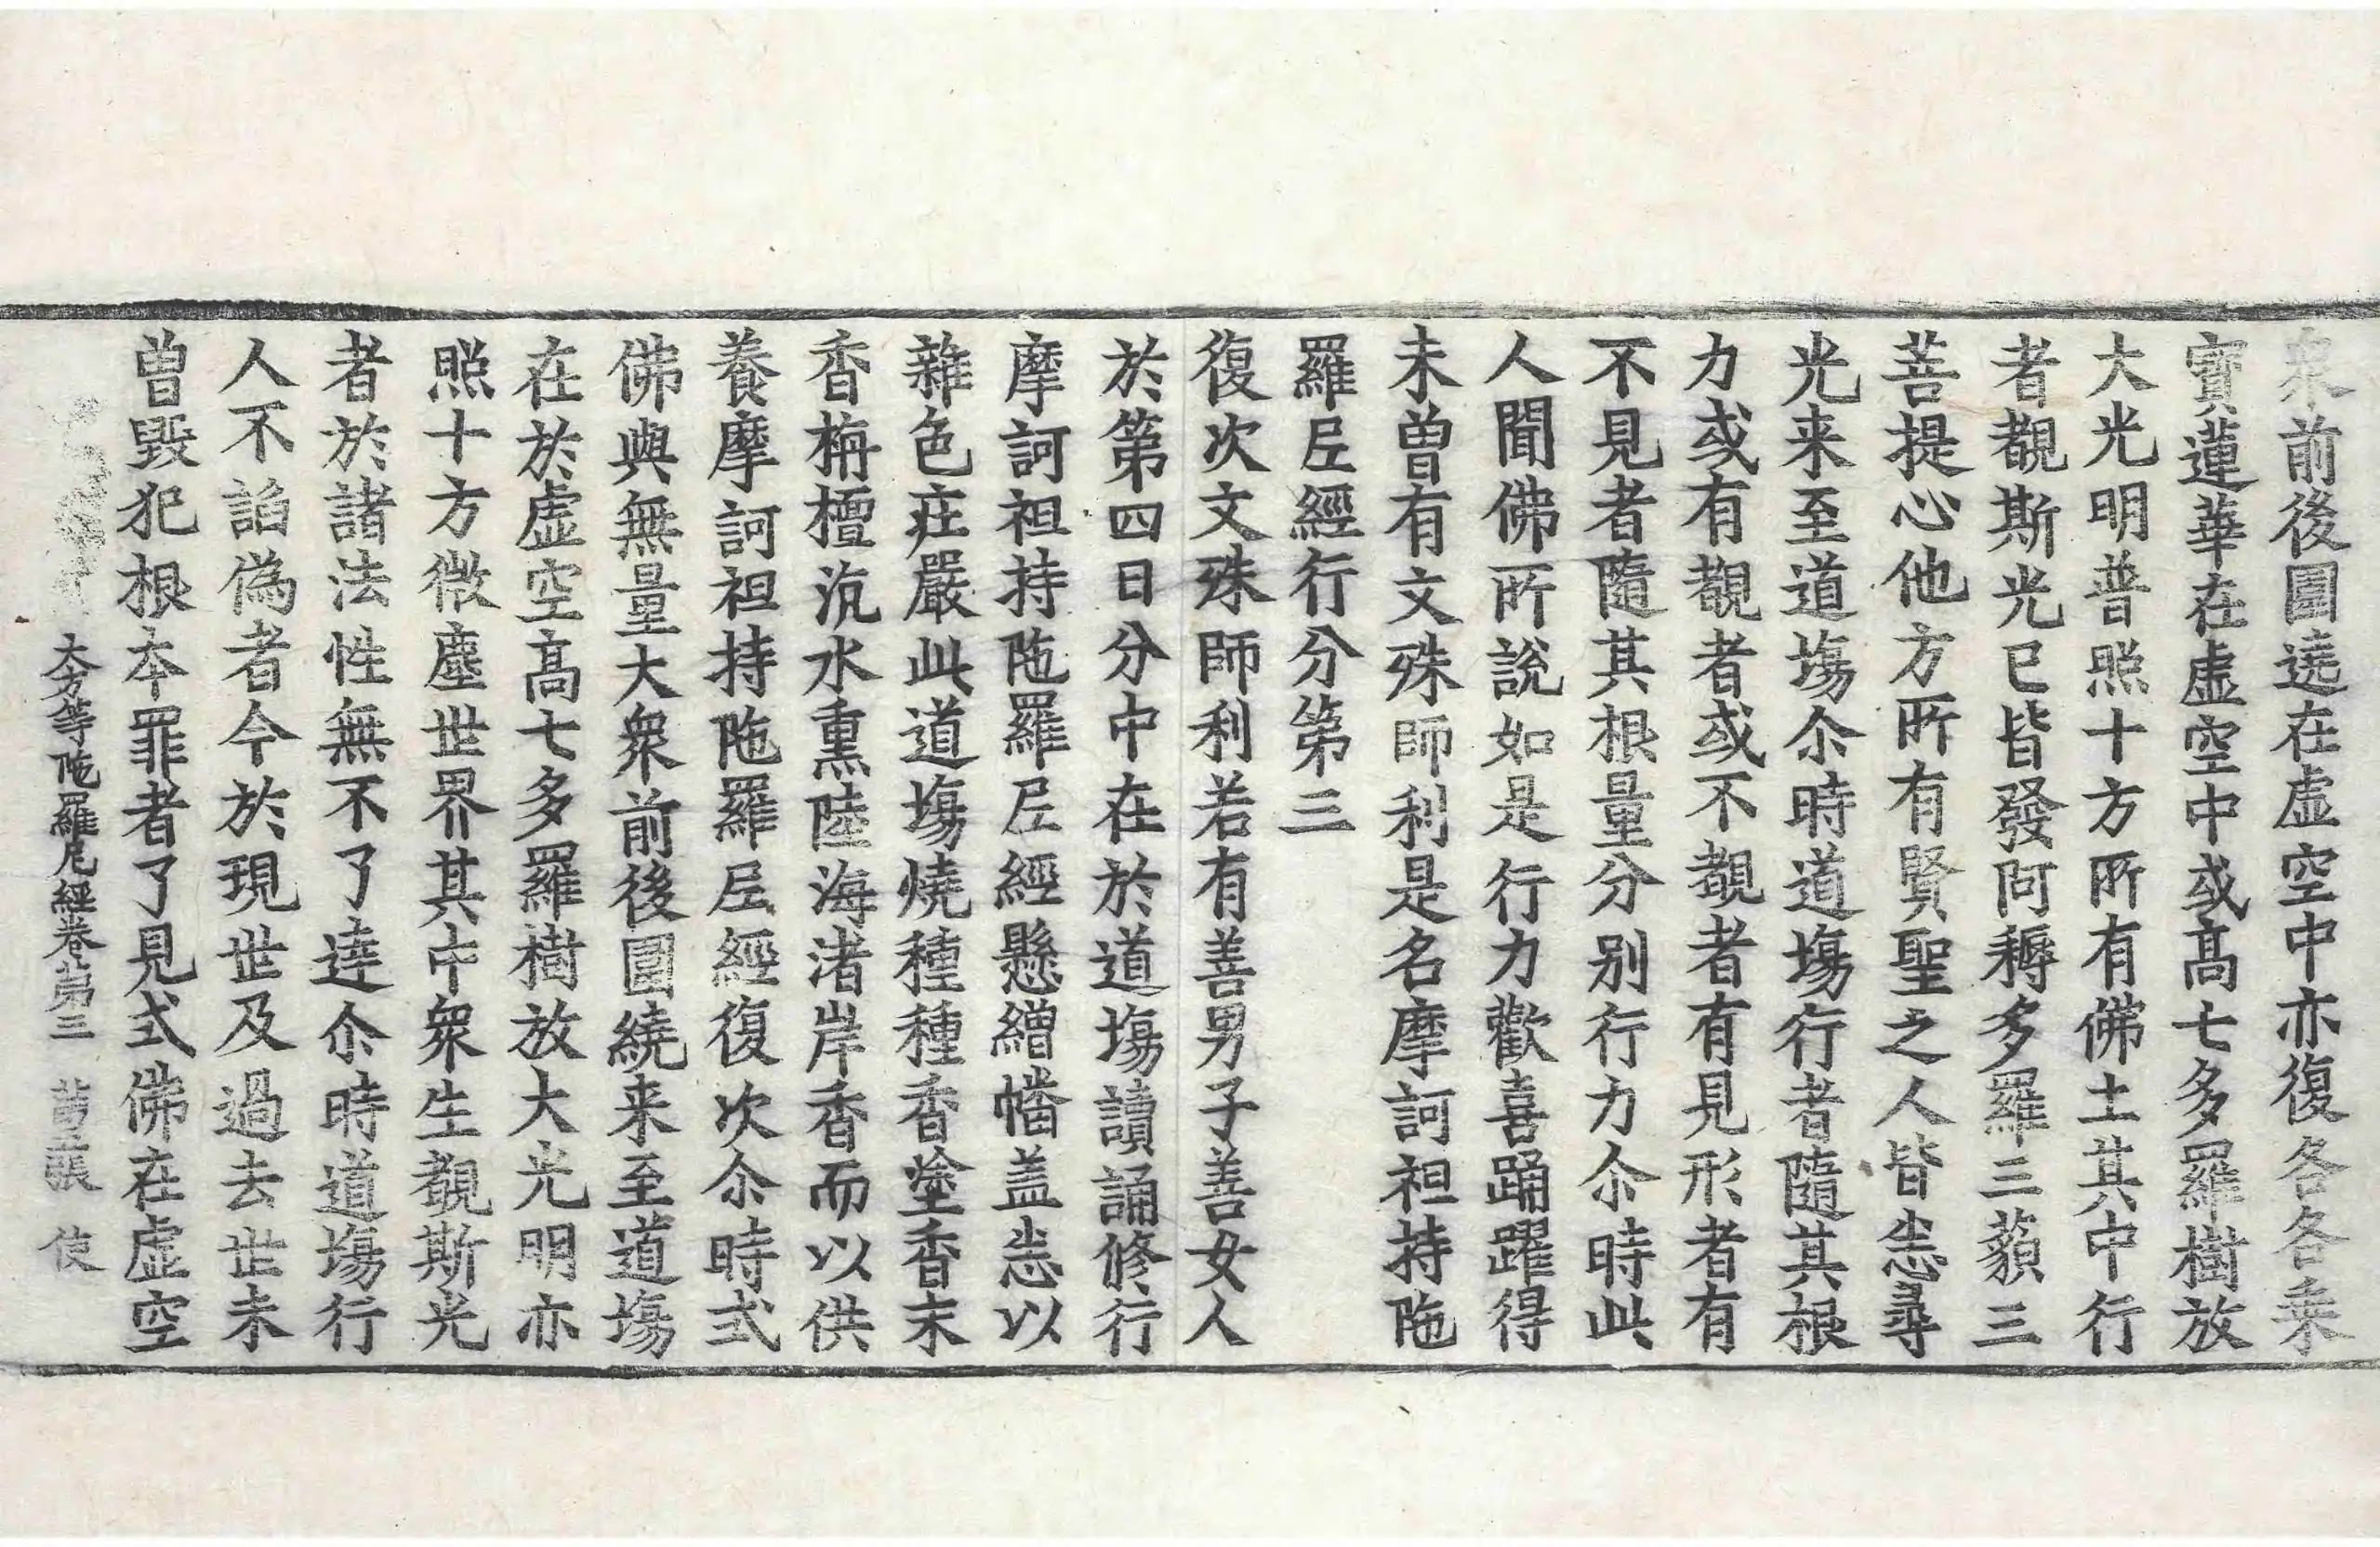 衆前後圍遶在虚空中亦復各各乗
寳蓮華在虚空中或高七多羅樹放
大光明普照十方所有佛土其中行
者覩斯光已皆發阿耨多羅三藐三
菩提心他方所有賢聖之人皆悉尋
光来至道塲尒時道塲行者隨其根
力或有覩者或不覩者有見形者有
不見者隨其根量分别行力尒時此
人聞佛所說如是行力歡喜踊躍得
未曽有文殊師利是名摩訶袒持陁
羅𡰱經行分第三
復次文殊師利若有善男子善女人
於第四日分中在於道塲讀誦修行
摩訶袒持陁羅𡰱經懸繒幡盖悉以
雜色庄嚴此道塲燒種種香塗香末
香栴檀沉水熏陸海渚岸香而以供
養摩訶袒持陁羅𡰱經復次尒時式
佛與無量大衆前後圍繞来至道塲
在於虚空高七多羅樹放大光明亦
照十方微塵世界其中衆生覩斯光
者於諸法性無不了達尒時道塲行
人不諂偽者今於現世及過去世未
曽毀犯根本罪者了見式佛在虚空
大方等陁羅尼經卷第三 張 使